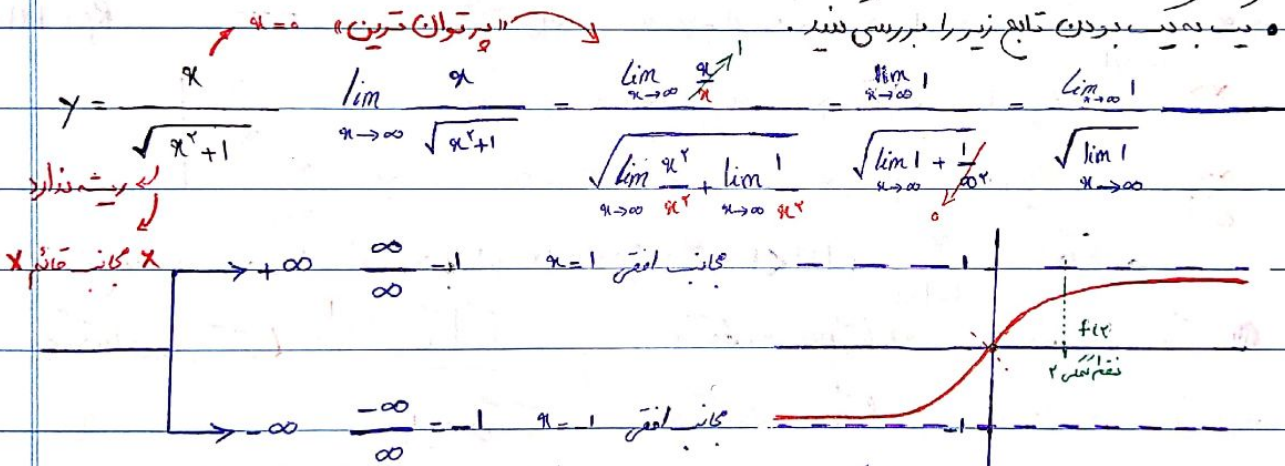 • یک به یک بودن تابع زیر را بررسی کنید. «پر توان ترین» x=0
y = x / √(x²+1) lim x→∞ x / √(x²+1) = lim x→∞ x/x 1 / √(lim x→∞ x²/x² + lim x→∞ 1/x²) = lim x→∞ 1 / √(lim x→∞ 1 + 1/∞²) 0 = lim x→∞ 1 / √(lim x→∞ 1)
ریشه ندارد
x مجانب قائم x → +∞ ∞/∞ = 1 x=1 مجانب افقی 1
f(2)
نقطه کمکی 2
→ -∞ -∞/∞ = -1 x=-1 مجانب افقی -1